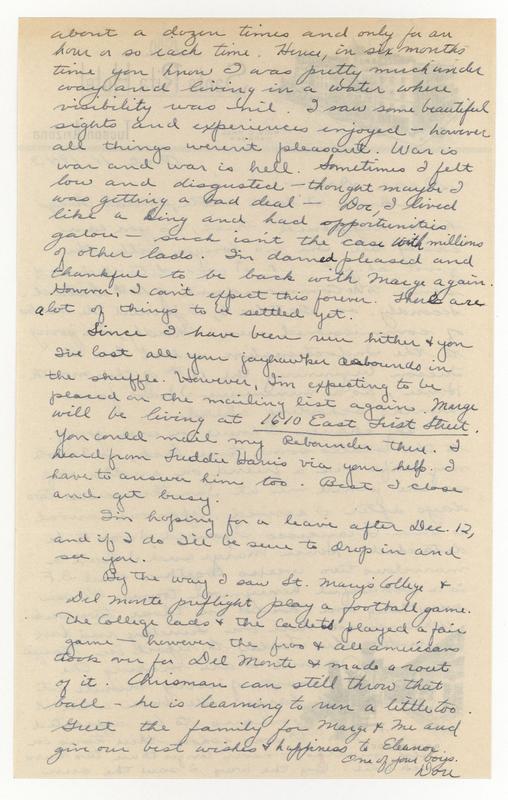 about a dozen times and only for an
hour or so each time. Hence, in six months
time you know I was pretty much under
way and living in a water where
visibility was - nil. I saw some beautiful
sights and experiences enjoyed - however
all things weren't pleasant. War is
war and war is hell. Sometimes I felt
low and disgusted - thought maybe I
was getting a bad deal - Doc, I lived
like a king and had opportunities
galore - such isn't the case with millions
of other lads. I'm darned pleased and
thankful to be back with Marge again.
However, I can't expect this forever. There are
a lot of things to be settled yet.
Since I have been run hither & yon
I've lost all your jayhawker rebounds in
the shuffle. However, I'm expecting to be
placed on the mailing list again. Marge
will be living at 1610 East First Street.
You could mail my Rebounder there. I
heard from Freddie Harris via your help. I
have to answer him too. Best I close
and get busy.
I'm hoping for a leave after Dec. 12,
and if I do I'll be sure to drop in and
see you.
By the way I saw St. Mary's College &
Del Monte preflight play a football game.
The College lads & the Cadets played a fair
game - however the pros & all americans
took over for Del Monte & made a rout
of it. Chrisman can still throw that
ball - he is learning to run a little too.
Greet the family for Marge & Me and
give our best wishes & happiness to Eleanor.
One of your boys.